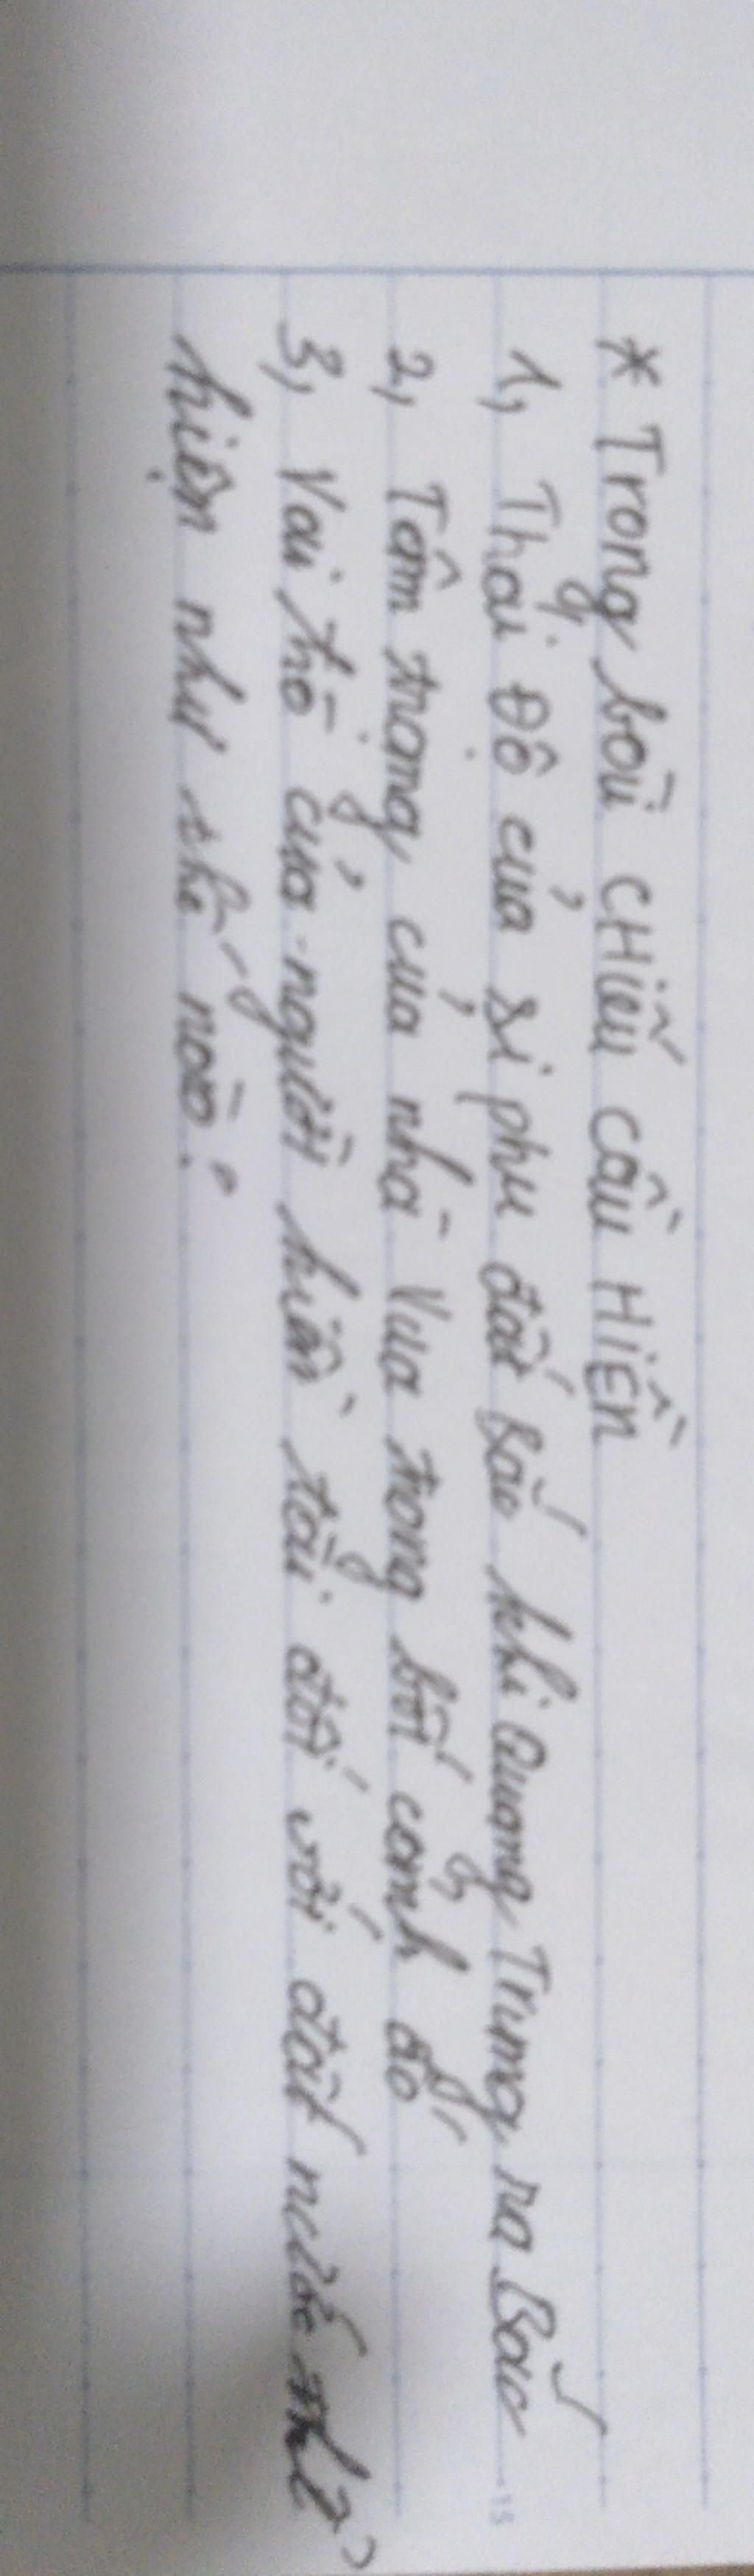 * Trong bài CHiếu cầu HiỀn
1, Thái Độ của sĩ phu đất Bắc khi Quang Trung ra Bắc
2, Tâm trạng của nhà Vua trong bối cảnh đó
3, Vai trò của người hiền tài đối với đất nước thể
hiện như thế nào?
15